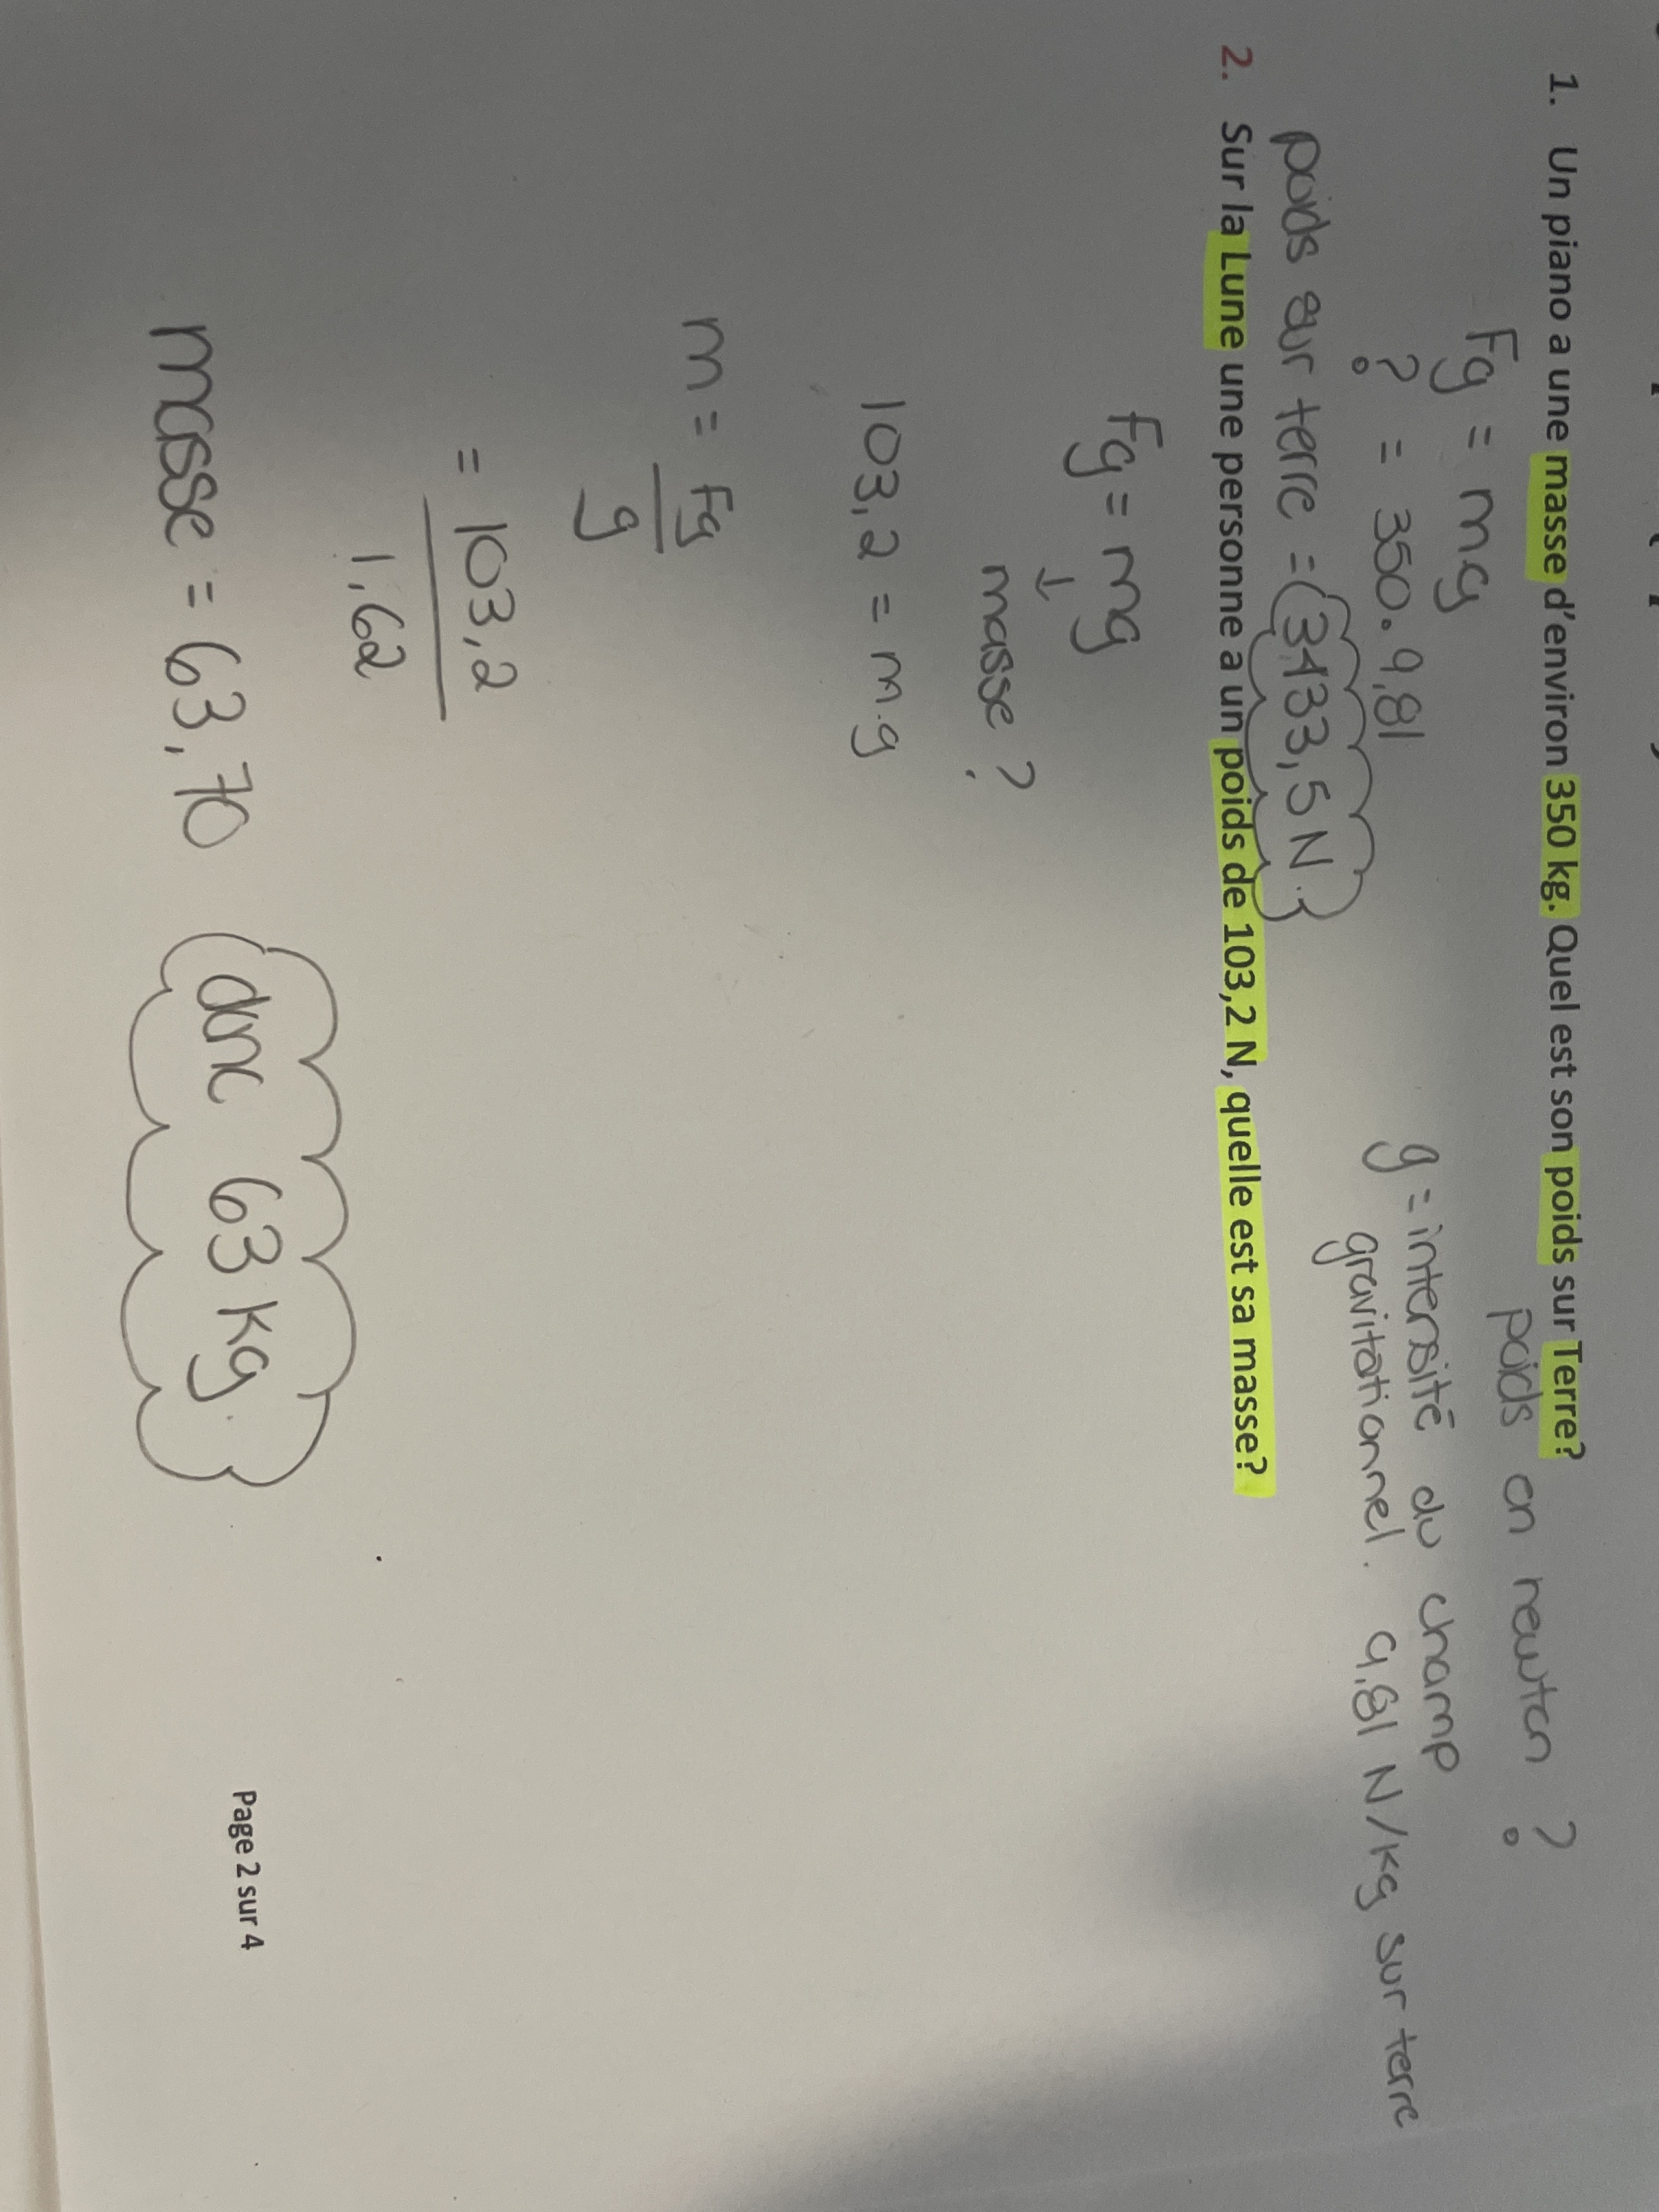 1. Un piano a une masse d'environ 350 kg. Quel est son poids sur Terre?
Fg = mg
poids en newton ?
? = 350. 9,81
g = intensité du champ
gravitationnel. 9,81 N/kg sur terre
poids sur terre = 3433,5 N.
2. Sur la Lune une personne a un poids de 103,2 N, quelle est sa masse?
Fg = mg
↓
masse ?
103,2 = m.g
m = Fg
g
= 103,2
1,62
masse = 63,70
donc 63 kg.
Page 2 sur 4